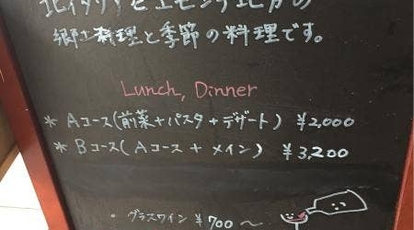 北イタリア ピエモンテ地方の
郷土料理と季節の料理です。
Lunch, Dinner
* Aコース(前菜+パスタ+デザート) ¥2,000
* Bコース(Aコース + メイン) ¥3,200
・グラスワイン ¥700〜